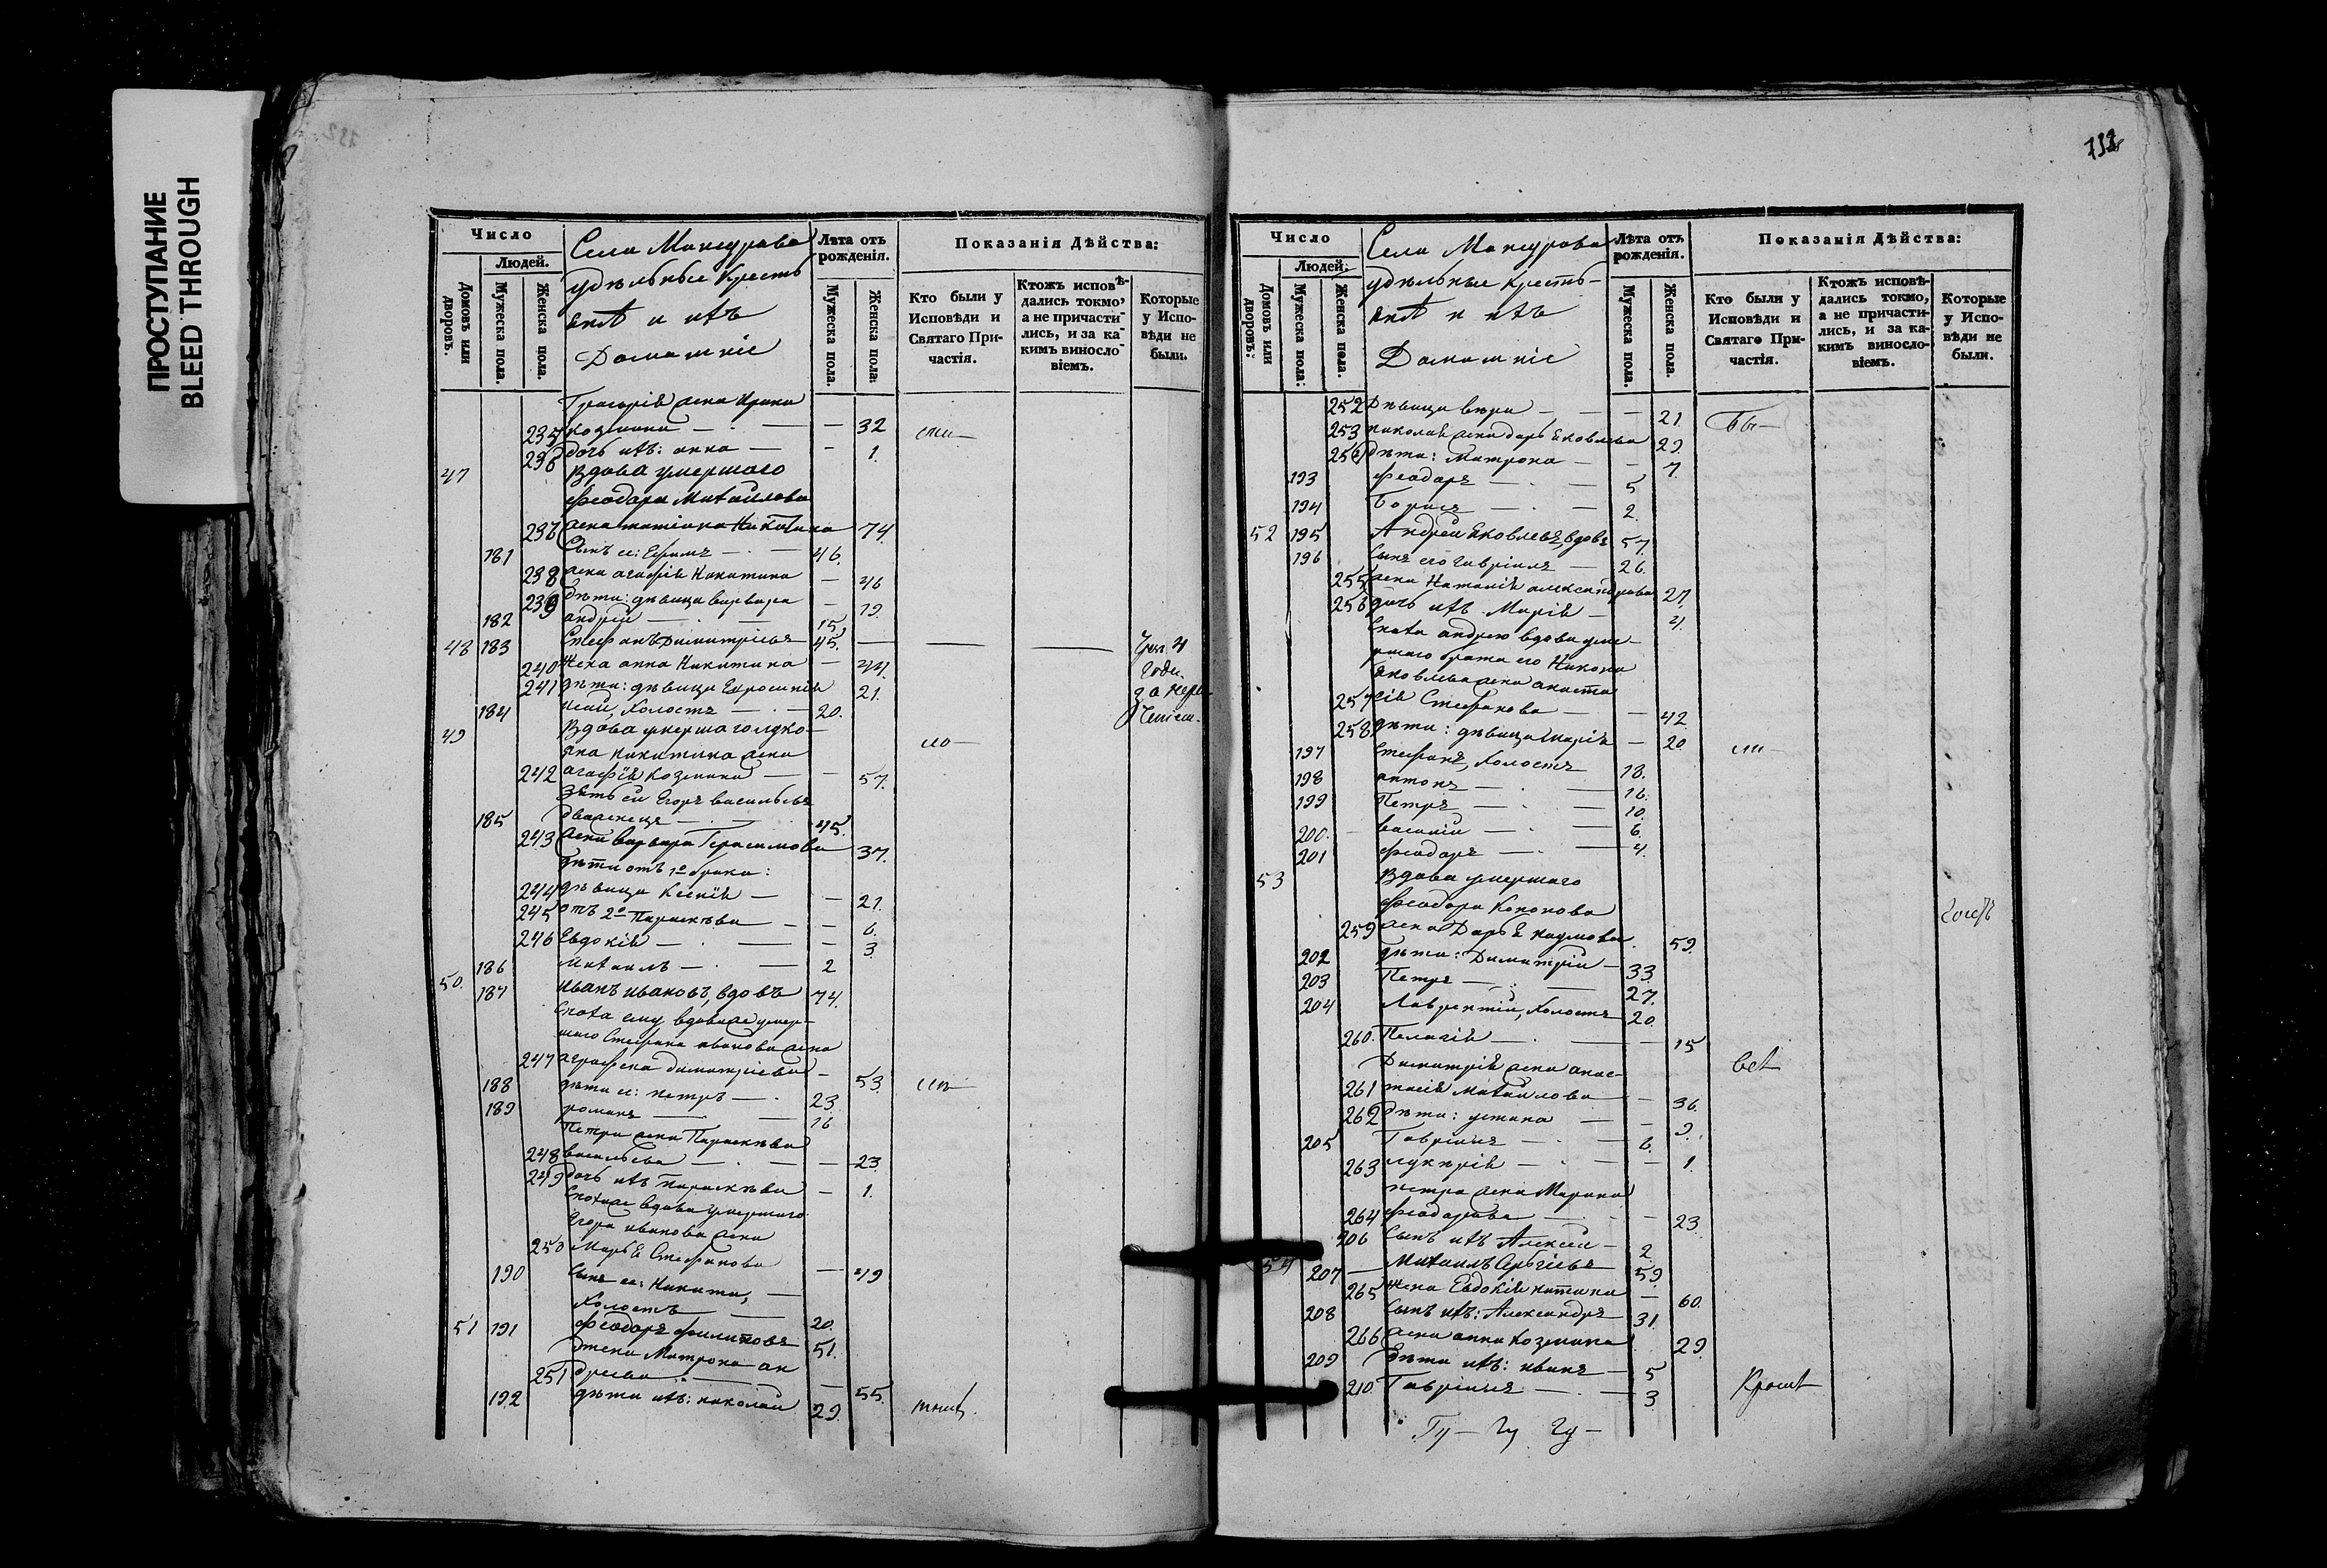 ПРОСТУПАНИЕ
BLEED THROUGH
Число
Людей.
Домовъ или дворовъ.
Мужеска пола.
Женска пола.
Села Мансурова
удѣльные Кресть
янѣ и ихъ
Домашніе
Лѣта отъ рожденія.
Мужеска пола.
Женска пола.
Показанія Дѣйства:
Кто были у Исповѣди и Святаго Причастія.
Ктожъ исповѣдались токмо, а не причастились, и за какимъ винословіемъ.
Которые у Исповѣди не были.
Григорія жена Ирина
235 Козмина — 32
236 дочь ихъ: анна — 1.
47 Вдова умершаго
Феодора Михайлова
237 жена Никитина 74
181 Сынъ ея: Ефимъ — 46.
238 жена агафія Никитина — 46
239 дѣти: дѣвица варвара — 19.
182 андрей — 15
48 183 Стефанъ Димитріевъ 45.
240 Жена анна Никитина — 44.
241 дѣти: дѣвица Евросинія 21.
184 Исай, Холостъ — 20.
49 Вдова умершаго
Никитина жена
242 агафія Козмина — 57.
Зять ея Егоръ васильевъ
185 — 45.
243 жена варвара Герасимова 37.
дѣти отъ 1го брака:
244 дѣвица Ксенія — 21.
245 отъ 2го Параскева — 6.
246 Евдокія — 3.
186 Михаилъ — 2
50. 187 Иванъ ивановъ, вдовъ 74.
Сноха ему, вдова умер-
шаго Стефана иванова жена
247 аграфена димитріева — 53.
188 дѣти ея: петръ — 23.
189 романъ — 16
Петра жена Параскева
248 васильева — 23.
249 дочь ихъ параскева — 1.
вдова умершаго
Егора иванова жена
250 Марья Стефанова — 49
190 Сынъ ея: Никита,
Холостъ — 20.
51 191 Феодоръ филиповъ 51.
Жена Матрона ан
251 дреева — 55.
192 дѣти ихъ: николай 29.
Число
Людей:
Домовъ или дворовъ:
Мужеска пола:
Женска пола.
Села Мансурова
удѣльные кресть-
янѣ и ихъ
Домашніе
Лѣта отъ рожденія.
Мужеска пола.
Женска пола.
Показанія Дѣйства:
Кто были у Исповѣди и Святаго Причастія.
Ктожъ исповѣдались токмо, а не причастились, и за какимъ винословіемъ.
Которые у Исповѣди не были.
252 Дѣвица вѣра — 21.
253 николая жена дарья Яковлева 29.
254 дѣти: Матрона — 7.
193 Феодоръ — 5
194 Борисъ — 2.
52 195 Андрей Яковлевъ, вдовъ 57.
196 Сынъ его гавріилъ — 26.
255 жена Наталія александрова 27.
256 дочь ихъ Марія — 4.
Сноха андрею вдова уме-
ршаго брата его
Яковлева жена анаста
257 сія Стефанова — 42.
258 дѣти: дѣвица Марія — 20.
197 Стефанъ, Холостъ 18.
198 антонъ — 16.
199 Петръ — 10.
200. василій — 6.
201 Феодоръ — 4.
53 Вдова умершаго
Феодора Кононова
259 жена Дарья наумова 59.
202 дѣти: Димитрій — 33.
203 Петръ — 27.
204 Лаврентій, Холостъ 20.
260. Пелагія — 15
Димитрія жена анас-
261 тасія Михайлова — 36.
262 дѣти: устина — 9.
205 Гавріилъ — 6.
263 лукерія — 1.
петра жена Марина
264 Феодорова — 23.
206 Сынъ ихъ Алексей — 2
54 207 — Михаилъ Сергіевъ 59.
265 Жена Евдокія — 60.
208 Сынъ ихъ: Александръ 31.
266 жена анна Козмина 29.
209 Дѣти ихъ: иванъ — 5
210. Гавріилъ — 3